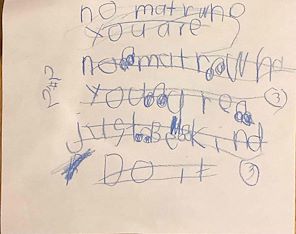 no matr who
you are
no matr Who
you are 3
just Be kind
Do it 3